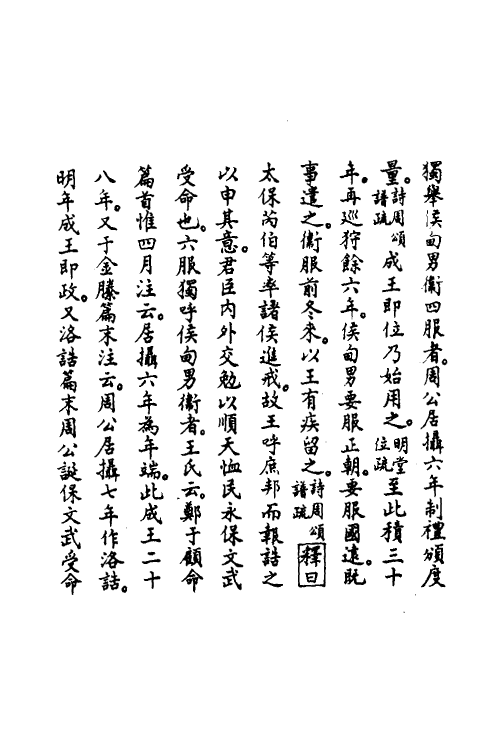 獨舉侯甸男衛四服者。周公居攝六年制禮頒度
量。詩周頌譜疏成王即位乃始用之。明堂位疏至此積三十
年。再巡狩餘六年。侯甸男要服正朝。要服國遠。既
事遣之。衛服前冬來。以王有疾留之。詩周頌譜疏釋曰
太保芮伯等率諸侯進戒。故王呼庶邦而報誥之
以申其意。君臣内外交勉以順天恤民永保文武
受命也。六服獨呼侯甸男衛者。王氏云。鄭于顧命
篇首惟四月注云。居攝六年為年端。此成王二十
八年。又于金縢篇末注云。周公居攝七年作洛誥。
明年成王即政。又洛誥篇末周公誕保文武受命